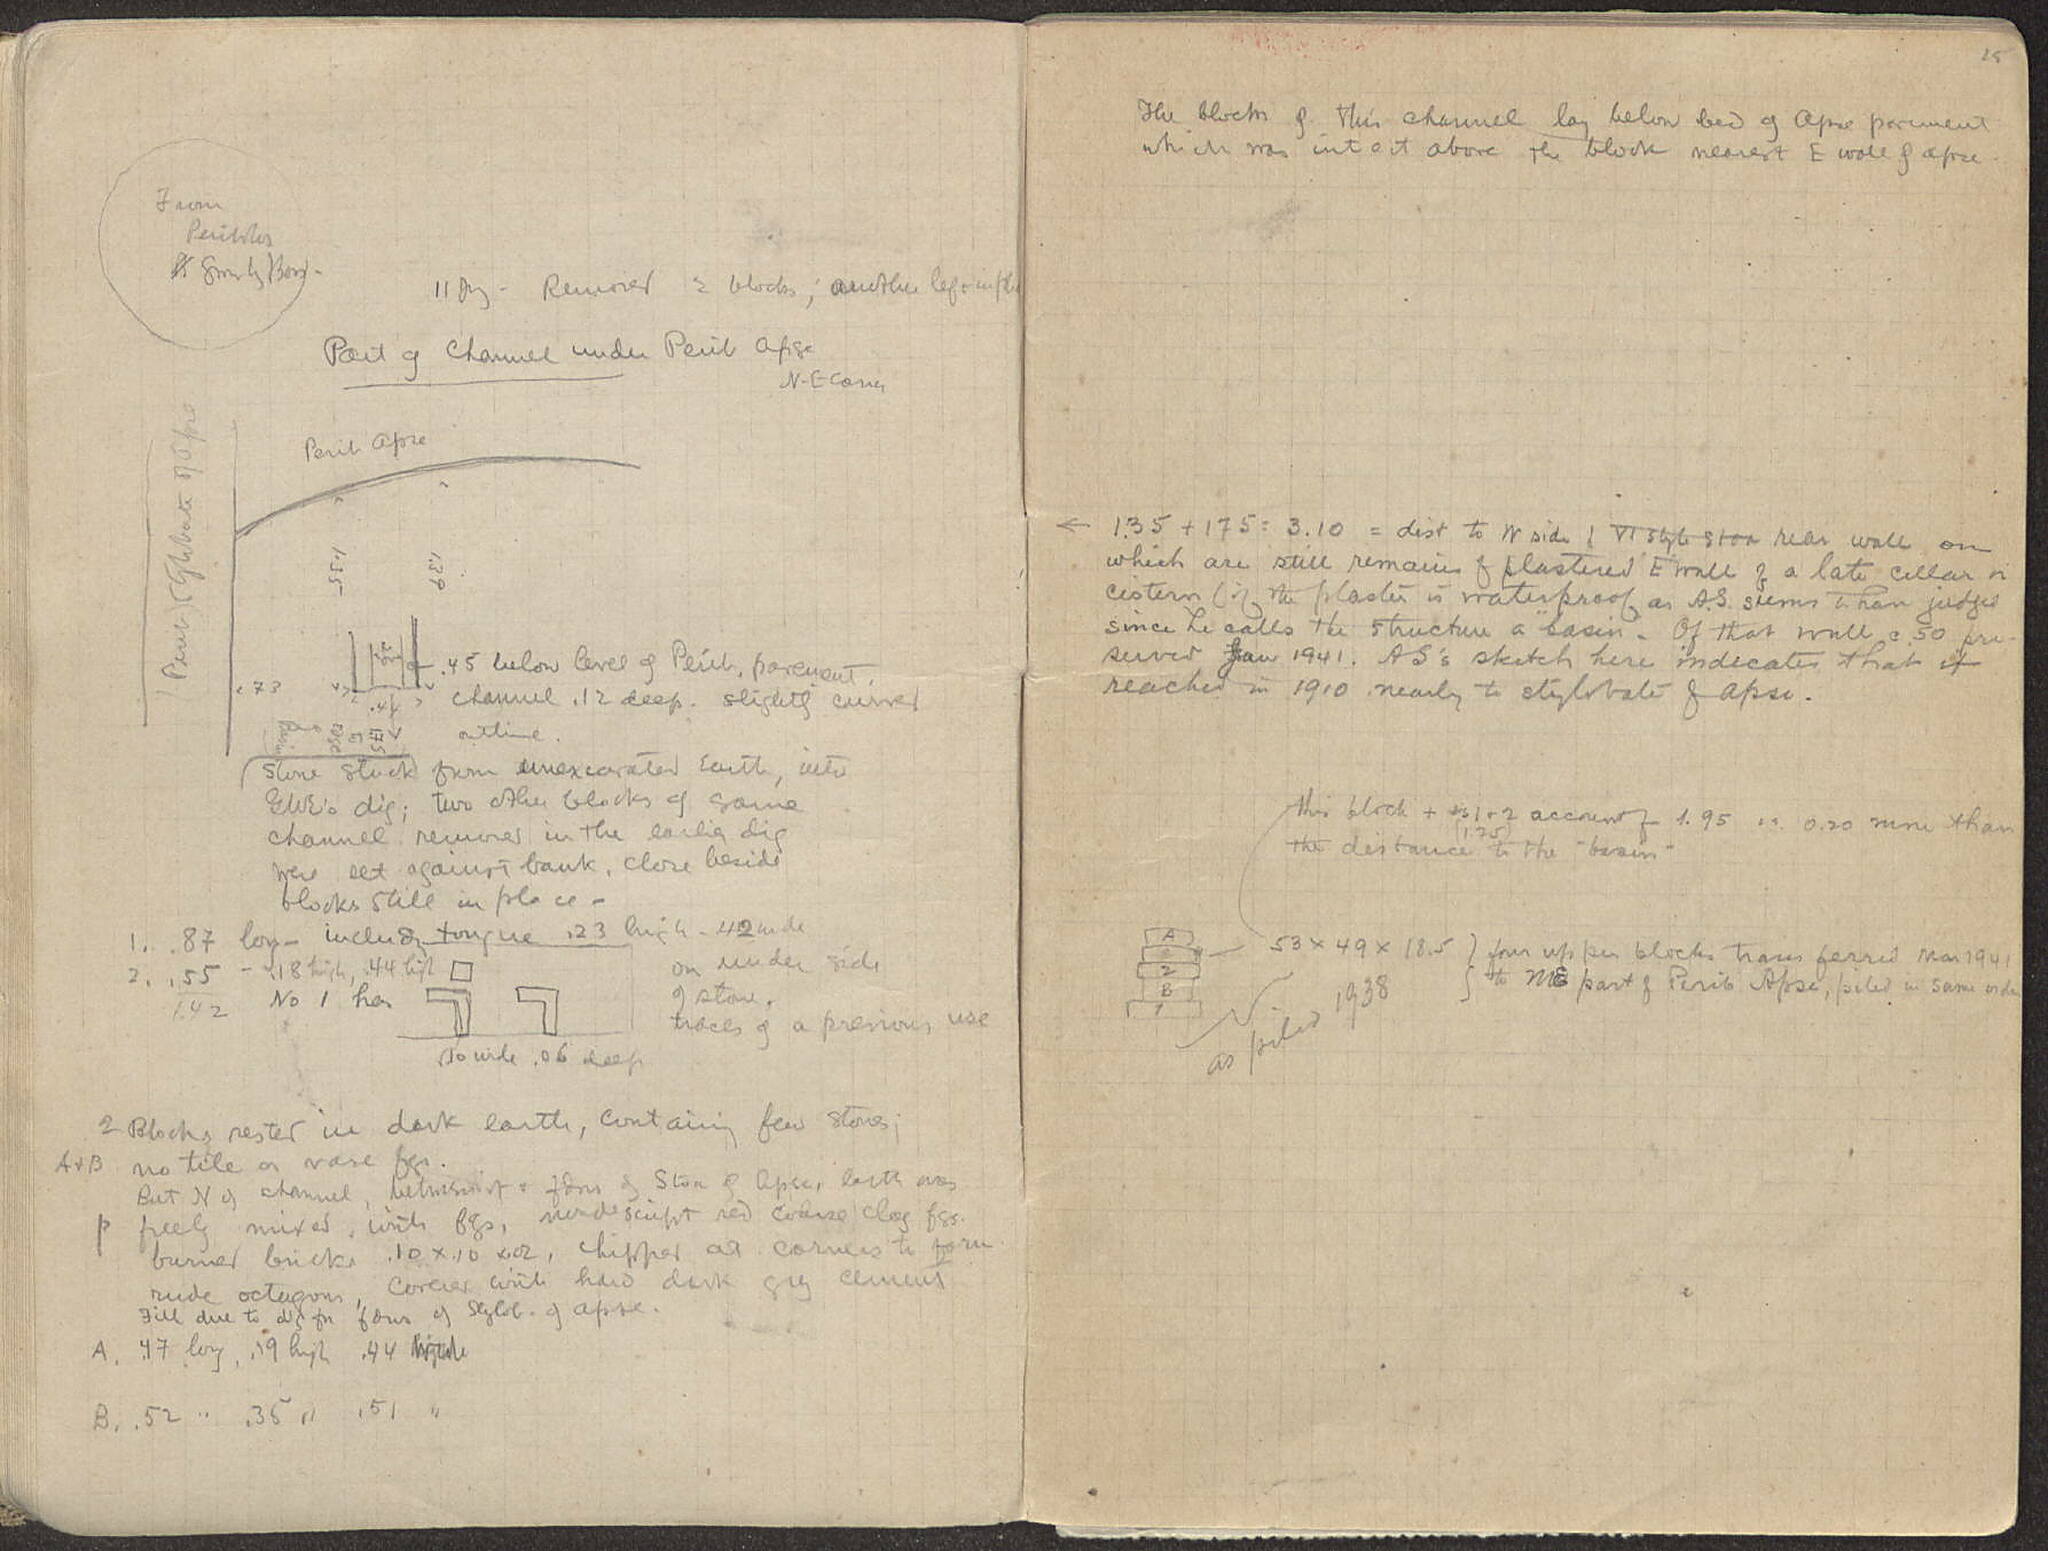 From
Peribolos
11 Aug - Removed 2 blocks; another left in
Part of Channel under Perib Apse
N-E Corner
Perib Apse
Perib) (Stylobate of Apse
1.35
1.39
.73
.44
1.75
to
edge
of
basin
.45 below level of Perib. pavement.
channel .12 deep. slightly curved
outline.
stone stuck from unexcavated Earth, into
GWE's dig; two other blocks of same
channel removed in the earlier dig
were set against bank, close beside
blocks still in place -
1. .87 long - including tongue .23 high - .42 wide
2. .55 - .18 high, .44
1.42
No 1 has
on under side
of stone.
traces of a previous use
.10 wide .06 deep
2 Blocks rested in dark earth, containing few stones;
A+B no tile or vase fgs.
But N of channel, between it + fdns of Stone of Apse, earth was
p freely mixed, with fgs, nondescript red coarse clay fgs.
burned bricks .10 x .10 x .02, chipped at corners to form
rude octagons, covered with hard dark grey cement
Fill due to dig for fdns of Stylob. of apse.
A. .47 long, .19 high .44 wide
B. .52 " .35 " .51 "
25
The blocks of this channel lay below bed of Apse pavement
which was intact above the block nearest E wall of apse.
← 1.35 + 1.75 = 3.10 = dist to N side of VI Style Stoa rear wall on
which are still remains of plastered E wall of a late cellar or
cistern (if the plaster is waterproof as A.S. seems to have judged
since he calls the structure a "basin". Of that wall c. 50 pre-
served Jan 1941. AS's sketch here indicates that it
reached in 1910 nearly to stylobate of apse.
this block + 1+2 account for 1.95 i.e. 0.20 more than
the distance (1.75) to the "basin"
A
2
B
1
53 x 49 x 18.5 } four upper blocks transferred Mar 1941
to NE part of Perib Apse, piled in same order
as piled 1938